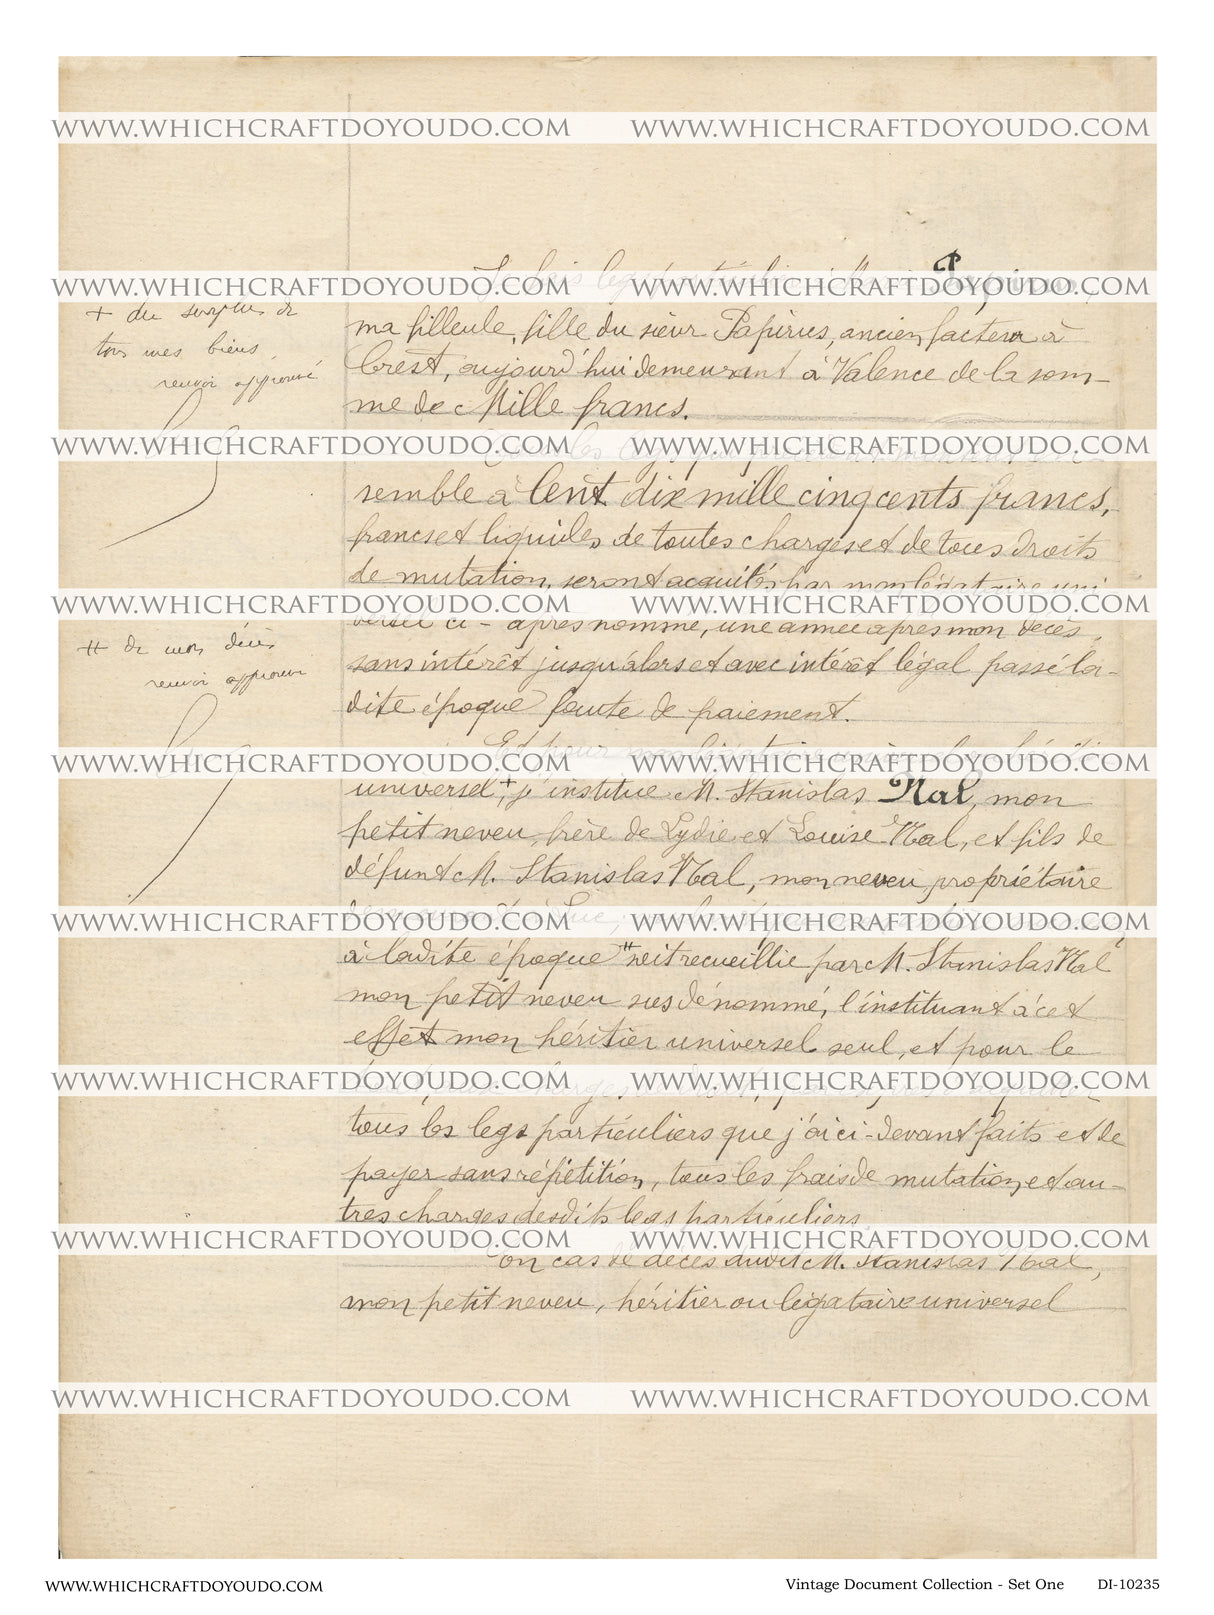 WWW.WHICHCRAFTDOYOUDO.COM WWW.WHICHCRAFTDOYOUDO.COM
Je fais legs particulier à Papirus,
WWW.WHICHCRAFTDOYOUDO.COM WWW.WHICHCRAFTDOYOUDO.COM
+ du surplus de
tous mes biens,
renvoi approuvé
ma filleule, fille du sieur Papirus, ancien facteur à
Crest, aujourd'hui demeurant à Valence de la som-
me de Mille francs.
WWW.WHICHCRAFTDOYOUDO.COM WWW.WHICHCRAFTDOYOUDO.COM
legs qui
semble à Cent dix mille cinq cents francs,
francs et liquides de toutes charges et de tous droits
de mutation, seront acquittés par mon légataire uni
WWW.WHICHCRAFTDOYOUDO.COM WWW.WHICHCRAFTDOYOUDO.COM
versel ci-après nommé, une année après mon décès,
++ de mon décès
renvoi approuvé
sans intérêt jusqu'alors et avec intérêt légal passé la-
dite époque faute de paiement.
Et pour mon légataire
WWW.WHICHCRAFTDOYOUDO.COM WWW.WHICHCRAFTDOYOUDO.COM
universel,+ j'institue M. Stanislas Nal, mon
petit neveu, frère de Lydie et Louise Nal, et fils de
défunt M. Stanislas Nal, mon neveu, propriétaire
WWW.WHICHCRAFTDOYOUDO.COM WWW.WHICHCRAFTDOYOUDO.COM
à ladite époque ++ soit recueillie par M. Stanislas Nal
mon petit neveu susdénommé, l'instituant à cet
effet mon héritier universel seul, et pour le
WWW.WHICHCRAFTDOYOUDO.COM WWW.WHICHCRAFTDOYOUDO.COM
tous les legs particuliers que j'ai ci-devant faits et de
payer sans répétition, tous les frais de mutation et au-
tres charges desdits legs particuliers.
WWW.WHICHCRAFTDOYOUDO.COM WWW.WHICHCRAFTDOYOUDO.COM
En cas de décès dudit M. Stanislas Nal,
mon petit neveu, héritier ou légataire universel
WWW.WHICHCRAFTDOYOUDO.COM WWW.WHICHCRAFTDOYOUDO.COM
WWW.WHICHCRAFTDOYOUDO.COM Vintage Document Collection - Set One DI-10235